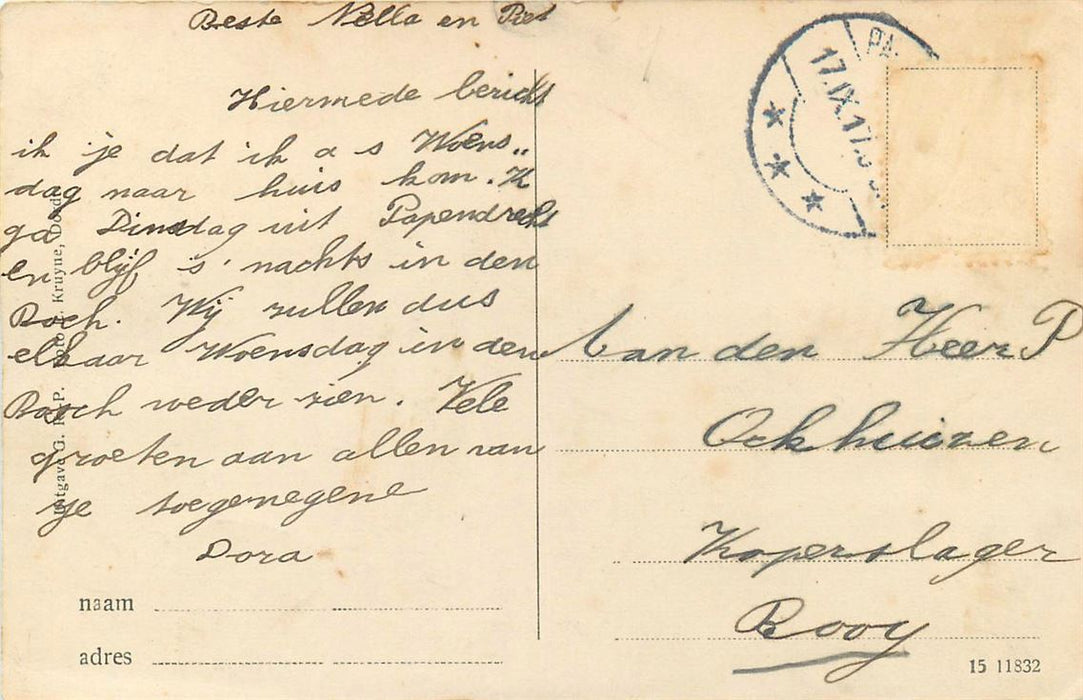 Beste Nella en Piet
Hiermede bericht
ik je dat ik a s Woens„
dag naar huis kom. K
ga Dinsdag uit Papendrecht
en blijf s' nachts in den
Bosch. Wij zullen dus
elkaar Woensdag in den
Bosch weder zien. Vele
groeten aan allen van
je toegenegene
Dora
naam
adres
Uitgave G. Kruyne, Dord
PA
17.IX.17.
Aan den Heer P
Ockhuizen
Koperslager
Rooy
15 11832